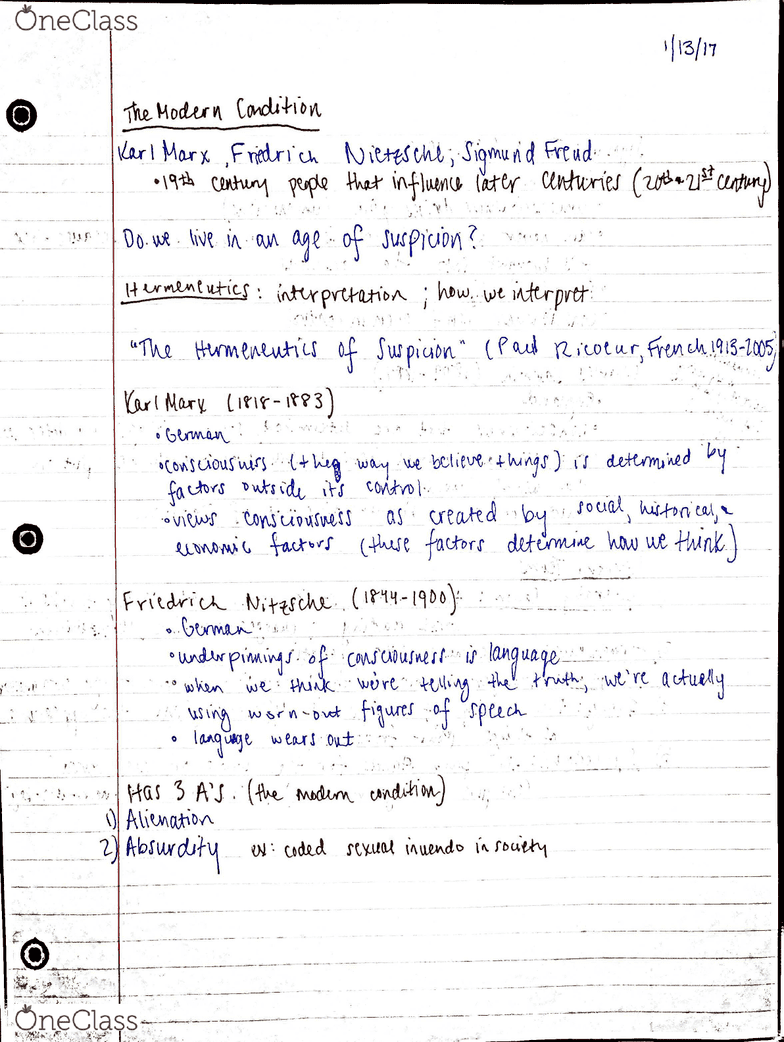 OneClass
1/13/17
The Modern Condition
Karl Marx, Friedrich Nietzsche, Sigmund Freud
• 19th century people that influence later centuries (20th & 21st century)
Do we live in an age of suspicion?
Hermeneutics: interpretation; how we interpret
"The Hermeneutics of Suspicion" (Paul Ricoeur, French 1913-2005)
Karl Marx (1818-1883)
• German
• consciousness (the way we believe things) is determined by
factors outside it's control.
• views consciousness as created by social, historical, &
economic factors (these factors determine how we think)
Friedrich Nitzsche (1844-1900)
• German
• underpinnings of consciousness is language
• when we think we're telling the truth, we're actually
using worn-out figures of speech
• language wears out
Has 3 A's. (the modern condition)
1) Alienation
2) Absurdity ex: coded sexual inuendo in society
OneClass